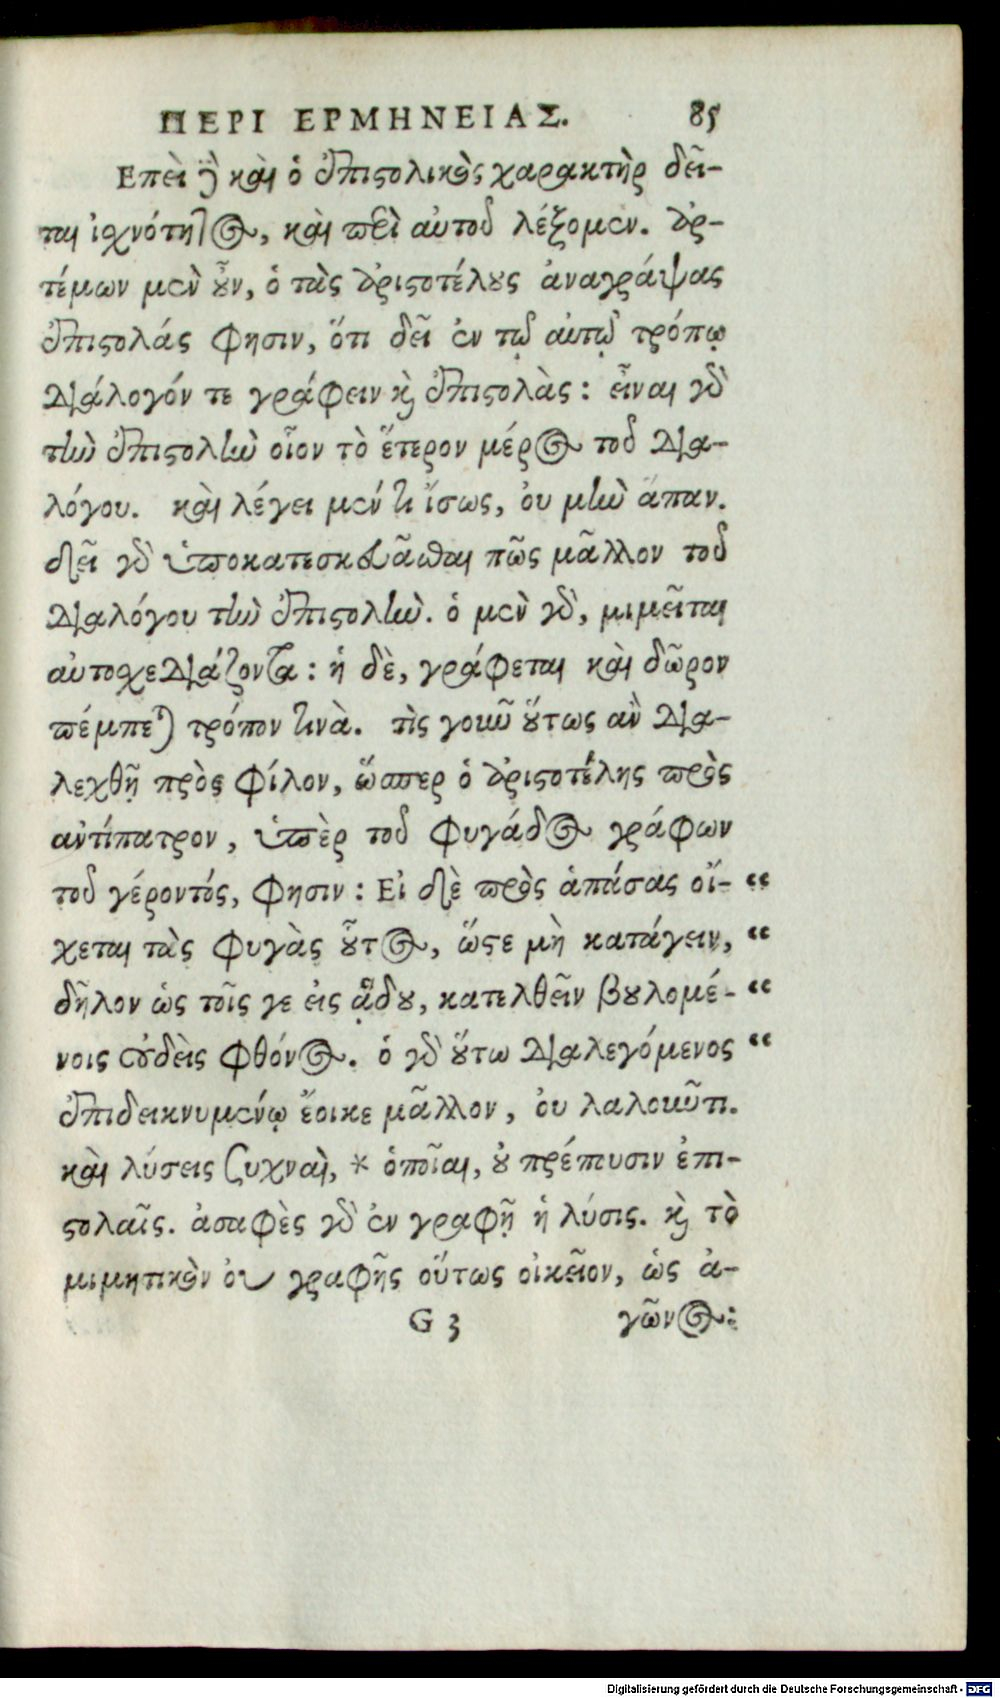 ΠΕΡΙ ΕΡΜΗΝΕΙΑΣ. 85
Επεὶ δὲ καὶ ὁ ἐπιστολικὸς χαρακτὴρ δεῖ-
ται ἰχνότητος, καὶ περὶ αὐτοῦ λέξομεν. ἀρ-
τέμων μὲν οὖν, ὁ τὰς ἀριστοτέλους ἀναγράψας
ἐπιστολάς φησιν, ὅτι δεῖ ἐν τῷ αὐτῷ τρόπῳ
διάλογόν τε γράφειν καὶ ἐπιστολὰς: εἶναι γὰρ
τὴν ἐπιστολὴν οἷον τὸ ἕτερον μέρος τοῦ δια-
λόγου. καὶ λέγει μέν τι ἴσως, οὐ μὴν ἅπαν.
δεῖ γὰρ ὑποκατεσκευᾶσθαι πῶς μᾶλλον τοῦ
διαλόγου τὴν ἐπιστολὴν. ὁ μὲν γὰρ, μιμεῖται
αὐτοχεδιάζοντα: ἡ δὲ, γράφεται καὶ δῶρον
πέμπεται τρόπον τινὰ. τὶς γοῦν οὕτως ἂν δια-
λεχθῇ πρὸς φίλον, ὥσπερ ὁ ἀριστοτέλης πρὸς
αντίπατρον, ὑπὲρ τοῦ φυγάδος γράφων
τοῦ γέροντός, φησιν: Εἰ δὲ πρὸς ἁπάσας οἴ- “
χεται τὰς φυγὰς οὗτος, ὥστε μὴ κατάγειν, “
δῆλον ὡς τοῖς γε εἰς ᾅδου, κατελθεῖν βουλομέ- “
νοις οὐδεὶς φθόνος. ὁ γὰρ οὕτω διαλεγόμενος “
ἐπιδεικνυμένῳ ἔοικε μᾶλλον, οὐ λαλοῦντι.
καὶ λύσεις συχναὶ, * ὁποῖαι, οὐ πρέπουσιν ἐπι-
στολαῖς. ἀσαφὲς γὰρ ἐν γραφῇ ἡ λύσις. καὶ τὸ
μιμητικὸν οὐ γραφῆς οὕτως οἰκεῖον, ὡς ἀ-
G 3 γῶνος:
Digitalisierung gefördert durch die Deutsche Forschungsgemeinschaft - DFG